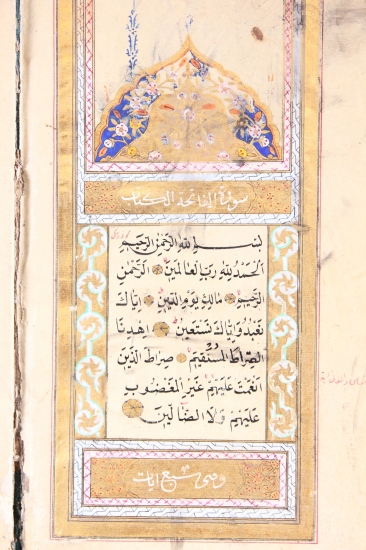 سورة الفاتحة الكتاب
بسم الله الرحمن الرحيم
اَلْحَمْدُ لِلّٰهِ رَبِّ الْعَالَمِينَ الرَّحْمٰنِ
الرَّحِيمِ مَالِكِ يَوْمِ الدِّينِ اِيَّاكَ
نَعْبُدُ وَاِيَّاكَ نَسْتَعِينُ اِهْدِنَا
الصِّرَاطَ الْمُسْتَقِيمَ صِرَاطَ الَّذِينَ
اَنْعَمْتَ عَلَيْهِمْ غَيْرِ الْمَغْضُوبِ
عَلَيْهِمْ وَلَا الضَّالِّينَ
وهي سبع آيات